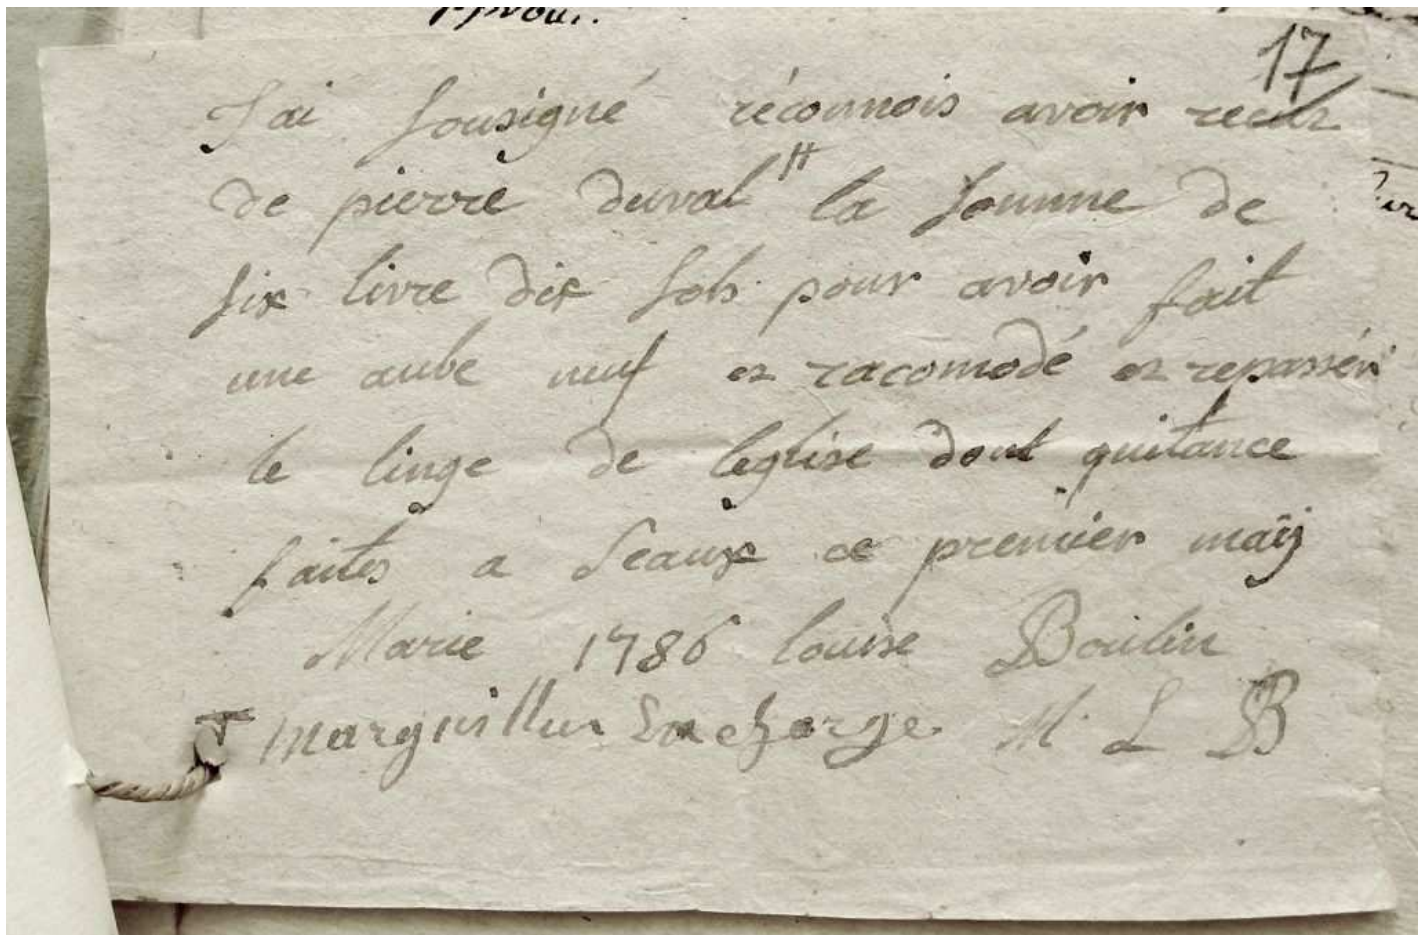 17
J'ai sousigné réconnois avoir recus
de pierre duval # la somme de
six livre dix sols pour avoir fait
une aube neuf et racomodé et repassér
le linge de leglise dont quitance
faites a Seaux ce premier maij
Marie 1786 louise Boulin
# marguillier En charge M L B